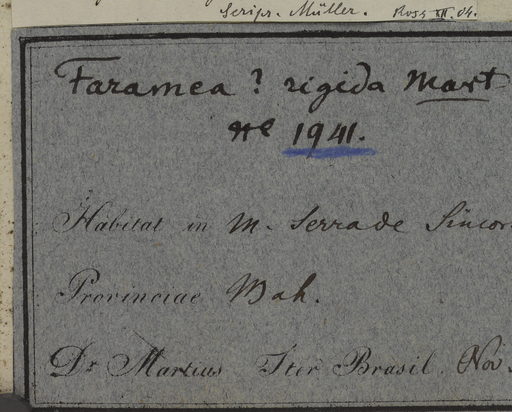 Scrips. Müller. Ross XII. 04.
Faramea ? rigida Mart
No 1941.
Habitat in M. Serra de Sincor
Provinciae Bah.
Dr Martius Iter Brasil. Nov.